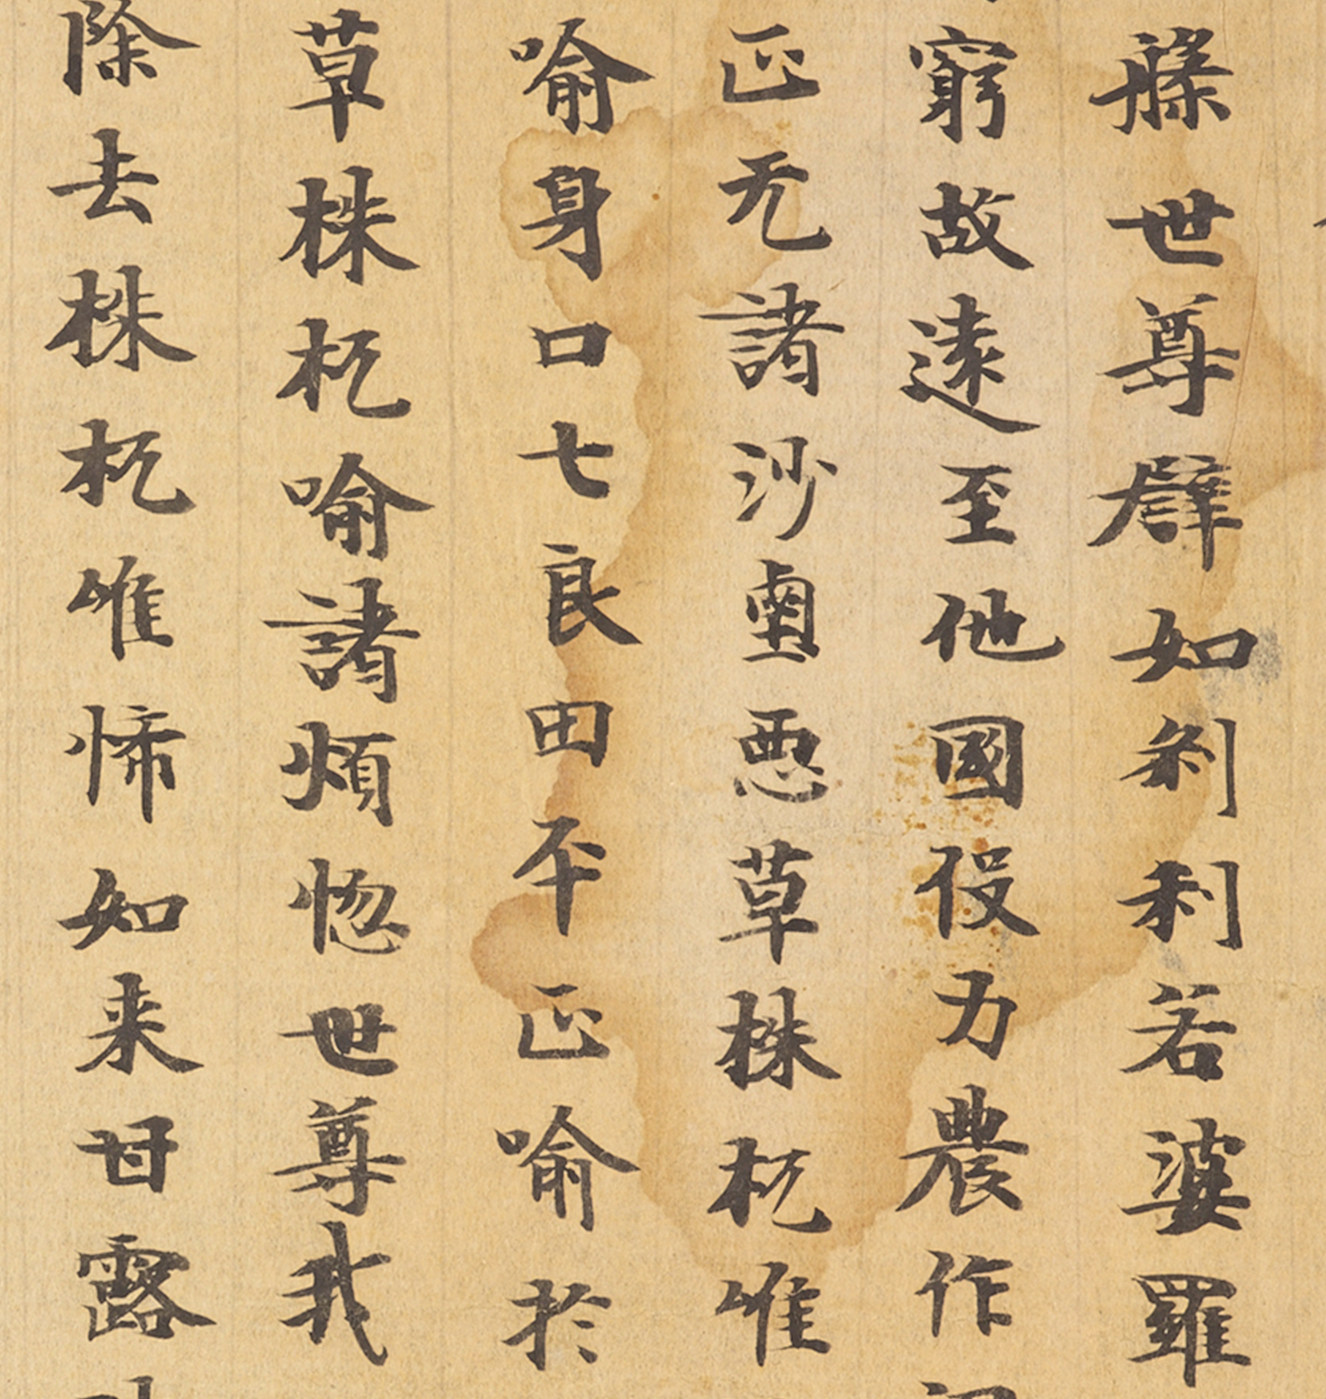 蔭世尊譬如刹利若婆羅
窮故遠至他國役力農作
正无諸沙鹵悪草株杌唯
喻身口七良田平正喻於
草株杌喻諸煩惱世尊我
除去株杌唯悕如来甘露